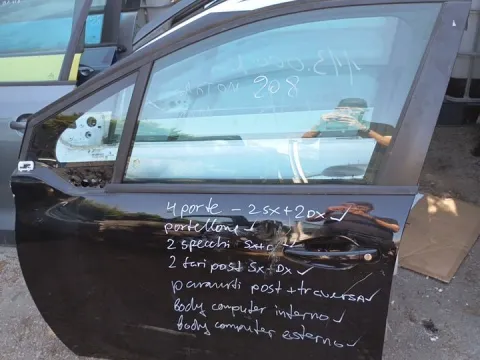 208
4 porte - 2 sx + 2 Dx ✓
portellone ✓
2 specchi sx+
2 fari post sx + Dx ✓
paraurti post + traversa ✓
body computer interno ✓
body computer esterno ✓